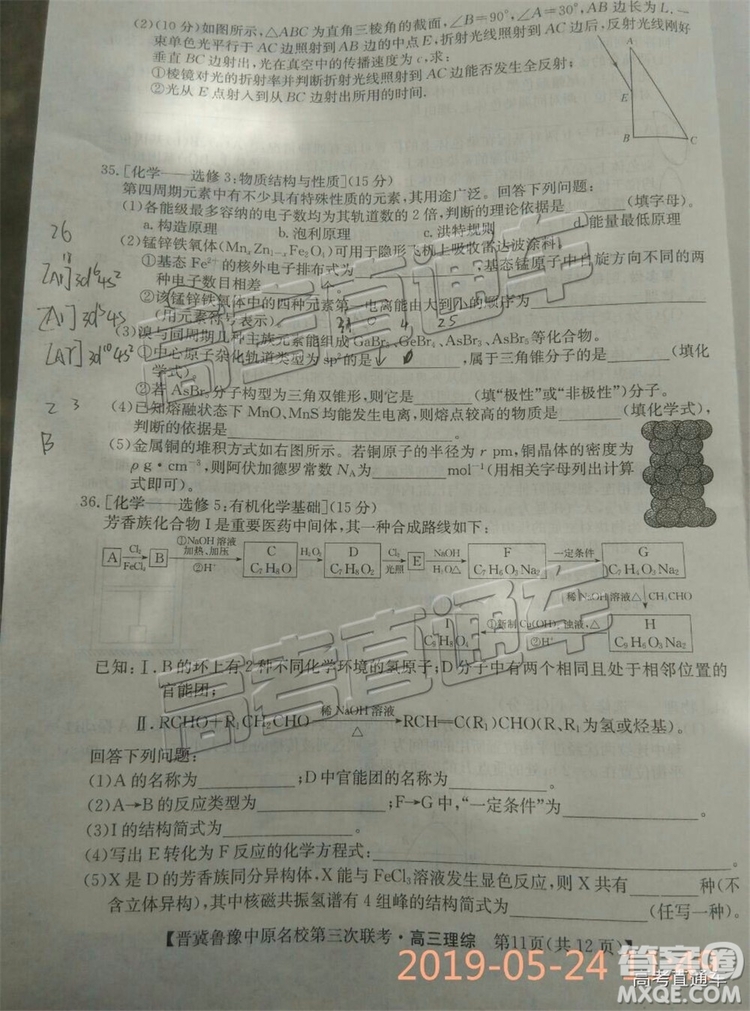 (2)(10分)如图所示,△ABC为直角三棱角的截面,∠B=90°,∠A=30°,AB边长为L.一
束单色光平行于AC边照射到AB边的中点E,折射光线照射到AC边后,反射光线刚好
垂直BC边射出,光在真空中的传播速度为c,求:
①棱镜对光的折射率并判断折射光线照射到AC边能否发生全反射;
②光从E点射入到从BC边射出所用的时间.
A
E
B
C
35.[化学——选修3:物质结构与性质](15分)
第四周期元素中有不少具有特殊性质的元素,其用途广泛。回答下列问题:
(1)各能级最多容纳的电子数均为其轨道数的2倍,判断的理论依据是(填字母)。
a.构造原理 b.泡利原理 c.洪特规则 d.能量最低原理
(2)锰锌铁氧体(MnxZn1-xFe2O4)可用于隐形飞机上吸收雷达波涂料。
①基态Fe2+的核外电子排布式为;基态锰原子中自旋方向不同的两
种电子数目相差
②该锰锌铁氧体中的四种元素第一电离能由大到小的顺序为
(用元素符号表示)。
(3)溴与同周期几种主族元素能组成GaBr3、GeBr4、AsBr3、AsBr5等化合物。
①中心原子杂化轨道类型为sp2的是,属于三角锥分子的是(填化
学式)。
②若AsBr5分子构型为三角双锥形,则它是(填“极性”或“非极性”)分子。
(4)已知熔融状态下MnO、MnS均能发生电离,则熔点较高的物质是(填化学式),
判断的依据是
(5)金属铜的堆积方式如右图所示。若铜原子的半径为r pm,铜晶体的密度为
ρ g·cm-3,则阿伏加德罗常数NA为 mol-1(用相关字母列出计算
式即可)。
26
[Ar]3d64s2
[Ar]3d54s
[Ar]3d104s2
23
B
36.[化学——选修5:有机化学基础](15分)
芳香族化合物I是重要医药中间体,其一种合成路线如下:
A Cl2 FeCl3 B ①NaOH溶液 加热、加压 ②H+ C C7H8O H2O2 D C7H8O2 Cl2 光照 E NaOH H2O△ F C7H6O3Na2 一定条件 G C7H4O3Na2
稀NaOH溶液△ CH3CHO
I C9H8O4 ①新制Cu(OH)2浊液,△ ②H+ H C9H6O3Na2
已知:Ⅰ.B的环上有2种不同化学环境的氢原子;D分子中有两个相同且处于相邻位置的
官能团;
Ⅱ.RCHO+R1CH2CHO 稀NaOH溶液 △ RCH=C(R1)CHO(R、R1为氢或烃基)。
回答下列问题:
(1)A的名称为;D中官能团的名称为。
(2)A→B的反应类型为;F→G中,“一定条件”为。
(3)I的结构简式为。
(4)写出E转化为F反应的化学方程式:
(5)X是D的芳香族同分异构体,X能与FeCl3溶液发生显色反应,则X共有种(不
含立体异构),其中核磁共振氢谱有4组峰的结构简式为(任写一种)。
【晋冀鲁豫中原名校第三次联考·高三理综 第11页(共12页)】
2019-05-24 11:40
高考直通车
答案圈
MXQE.COM
高考直通车
高考直通车